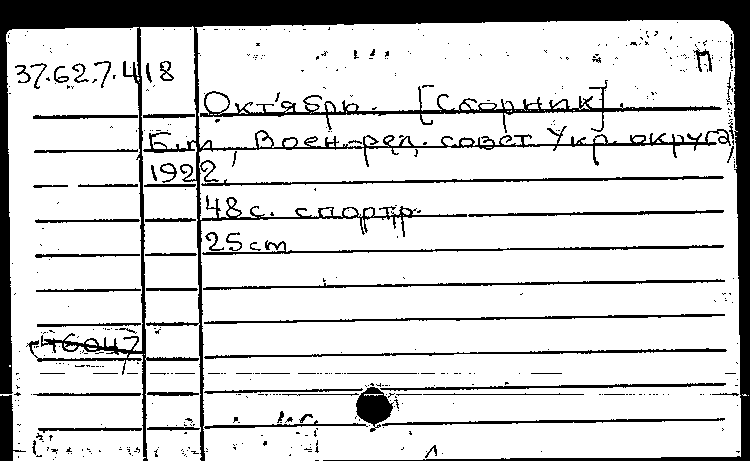 П
37.62.7.418
Октябрь. [Сборник].
Б.м., Воен.-ред. совет Укр. округа,
1922.
48 с. с портр.
25 cm
46047